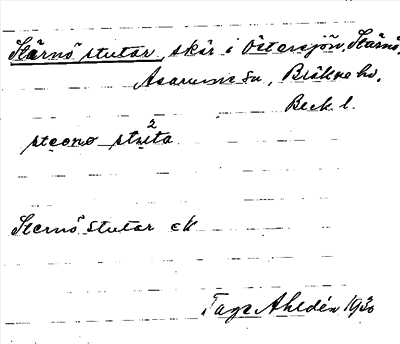 Stärnö stutar, skär i Östersjön, Stärnö,
Asarums sn, Bräkne hd,
Blek. l.
stæ̣ṇo stụ2ta
Sternö stutar ek
Tage Ahldén 1930